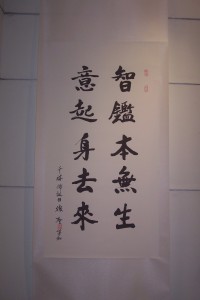 智鑑本無生
意起身去來